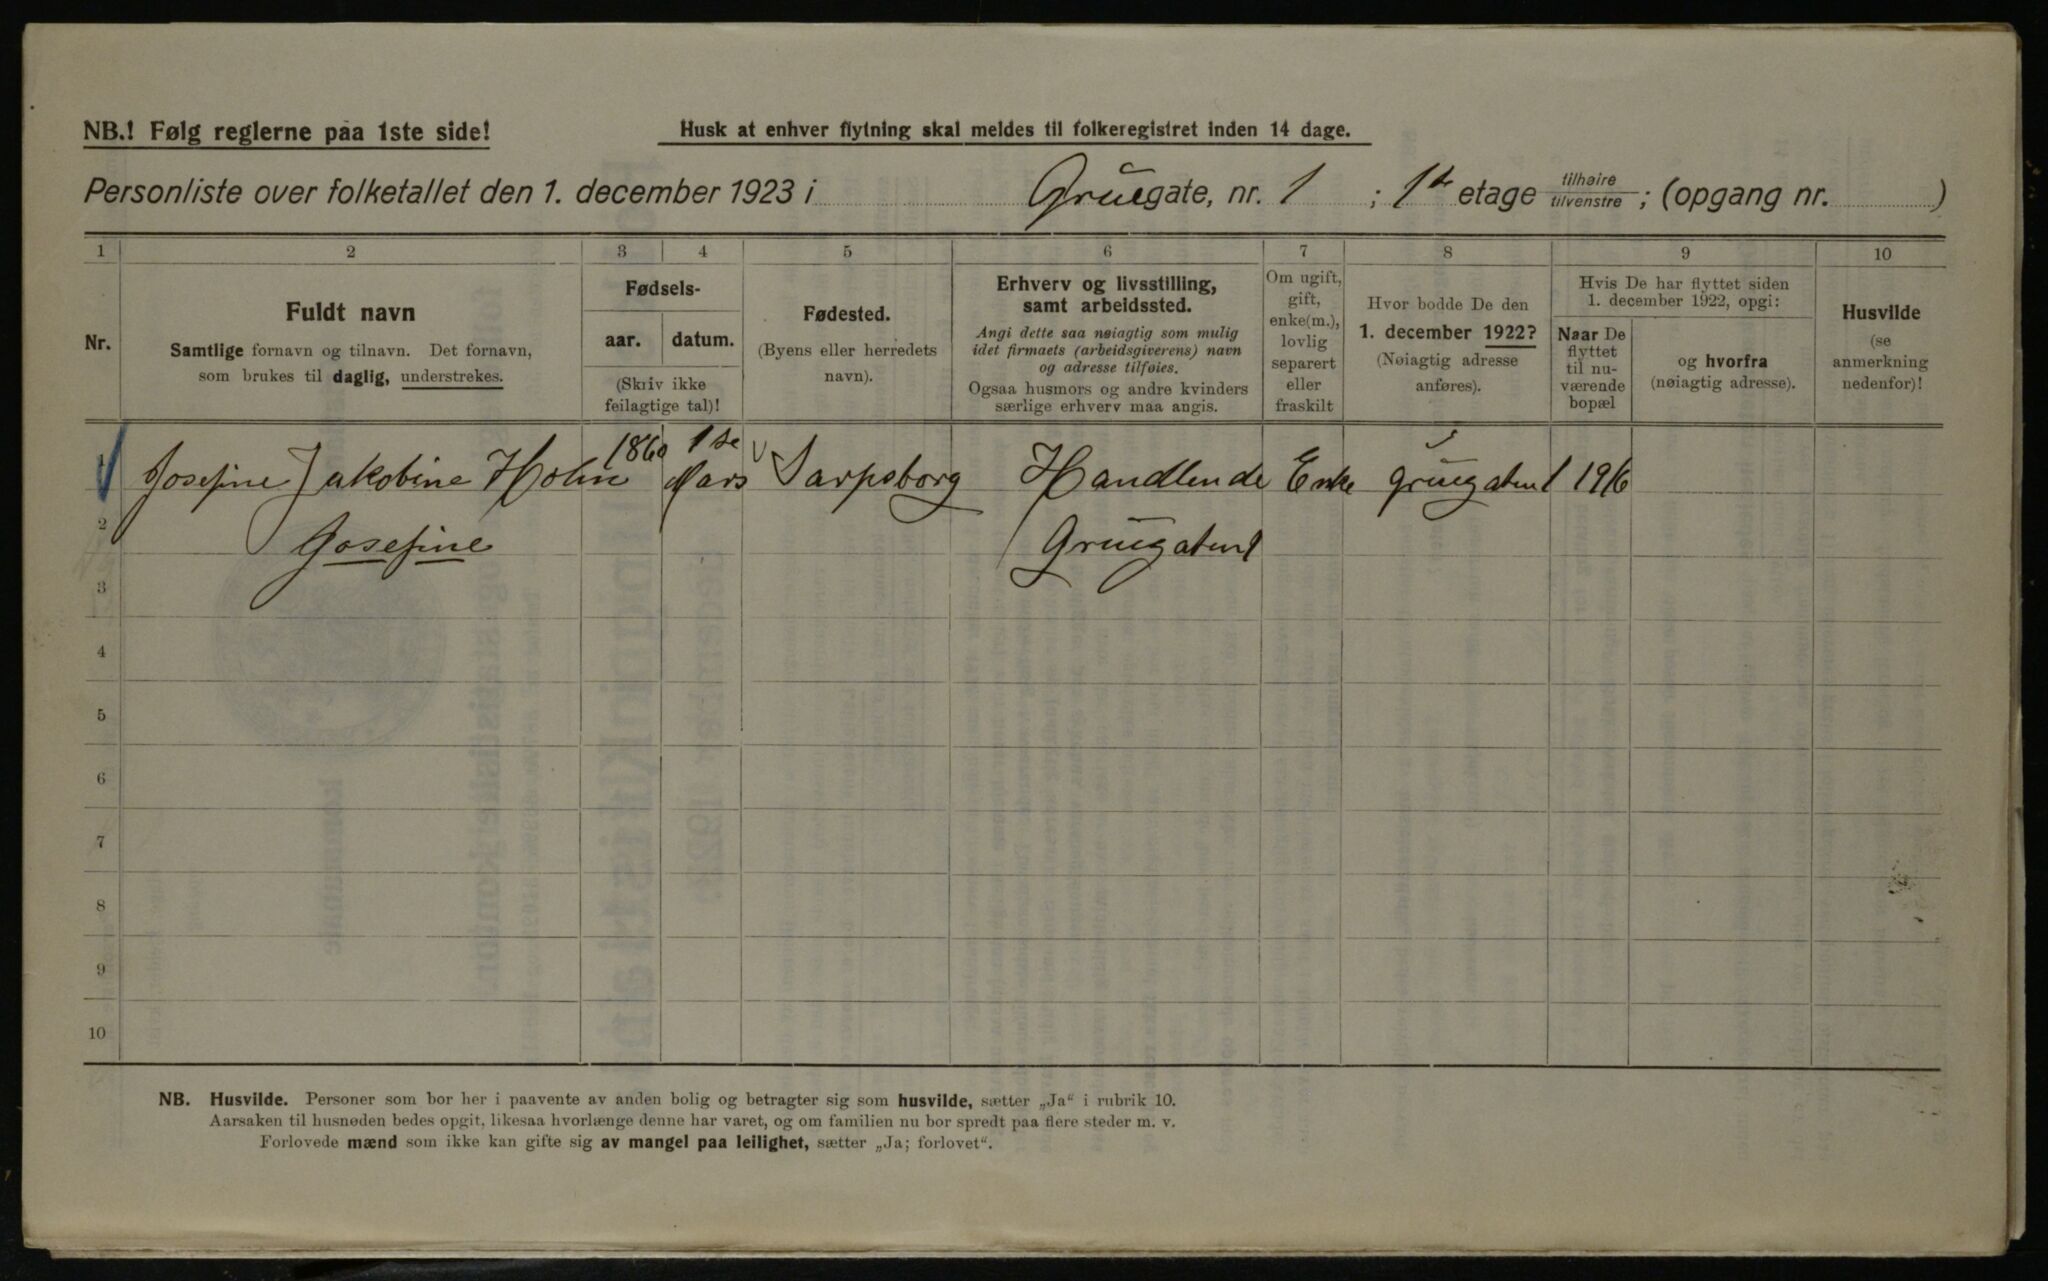 NB.! Følg reglerne paa 1ste side!
Husk at enhver flytning skal meldes til folkeregistret inden 14 dage.
Personliste over folketallet den 1. december 1923 i Gruegate, nr. 1 ; 1ste etage tilhøire tilvenstre ; (opgang nr. )
1 2 3 4 5 6 7 8 9 10
Nr.
Fuldt navn
Samtlige fornavn og tilnavn. Det fornavn,
som brukes til daglig, understrekes.
Fødsels-
aar. datum.
(Skriv ikke
feilagtige tal)!
Fødested.
(Byens eller herredets
navn).
Erhverv og livsstilling,
samt arbeidssted.
Angi dette saa nøiagtig som mulig
idet firmaets (arbeidsgiverens) navn
og adresse tilføies.
Ogsaa husmors og andre kvinders
særlige erhverv maa angis.
Om ugift,
gift,
enke(m.),
lovlig
separert
eller
fraskilt
Hvor bodde De den
1. december 1922?
(Nøiagtig adresse
anføres).
Hvis De har flyttet siden
1. december 1922, opgi:
Naar De
flyttet
til nu-
værende
bopæl
og hvorfra
(nøiagtig adresse).
Husvilde
(se
anmerkning
nedenfor)!
1 Josefine Jakobine Holm 1860 1ste Mars Sarpsborg Handlende Enke Gruegaten 1 1916
2 Josefine Gruegaten 1
3
4
5
6
7
8
9
10
NB. Husvilde. Personer som bor her i paavente av anden bolig og betragter sig som husvilde, sætter „Ja" i rubrik 10.
Aarsaken til husnøden bedes opgit, likesaa hvorlænge denne har varet, og om familien nu bor spredt paa flere steder m. v.
Forlovede mænd som ikke kan gifte sig av mangel paa leilighet, sætter „Ja; forlovet".